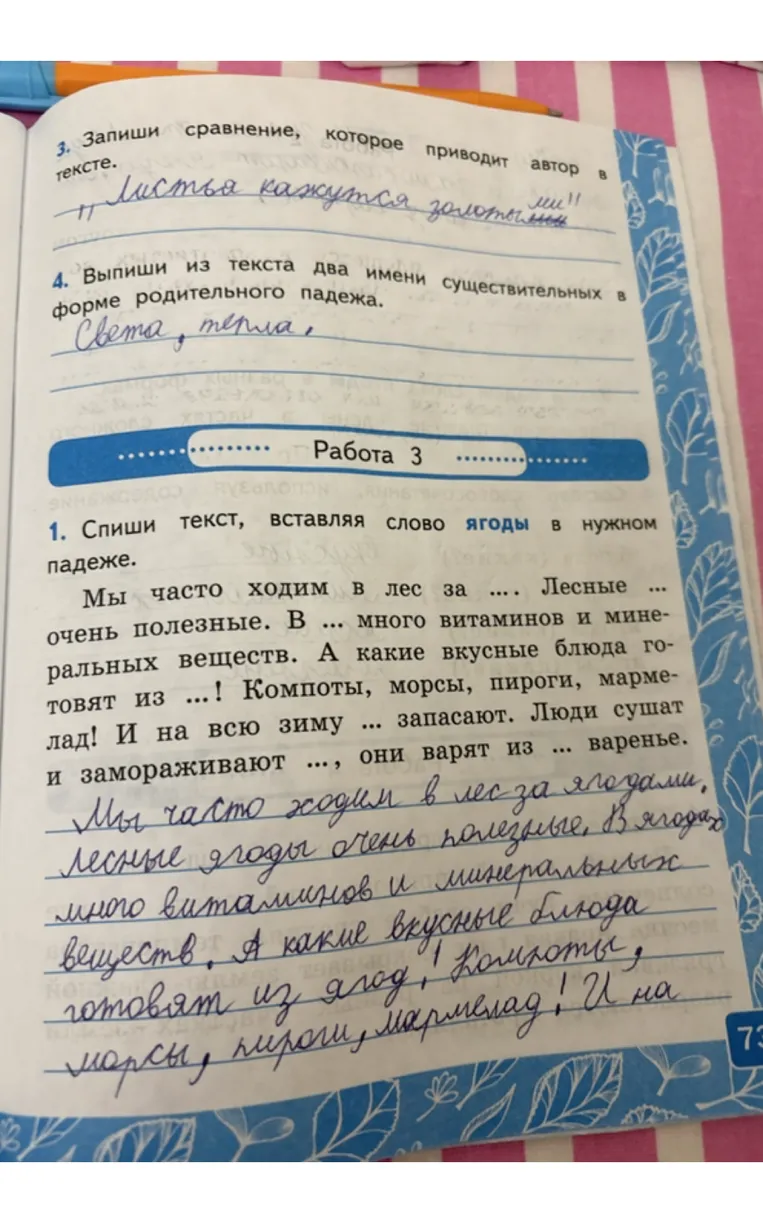 3. Запиши сравнение, которое приводит автор в
тексте.
„Листья кажутся золотыми"
4. Выпиши из текста два имени существительных в
форме родительного падежа.
Света, тепла.
Работа 3
1. Спиши текст, вставляя слово ягоды в нужном
падеже.
Мы часто ходим в лес за .... Лесные ...
очень полезные. В ... много витаминов и мине-
ральных веществ. А какие вкусные блюда го-
товят из ...! Компоты, морсы, пироги, марме-
лад! И на всю зиму ... запасают. Люди сушат
и замораживают ..., они варят из ... варенье.
Мы часто ходим в лес за ягодами.
Лесные ягоды очень полезные. В ягодах
много витаминов и минеральных
веществ. А какие вкусные блюда
готовят из ягод! Компоты,
морсы, пироги, мармелад! И на
73